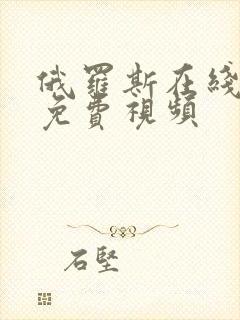 俄羅斯在綫
免費視頻
石堅